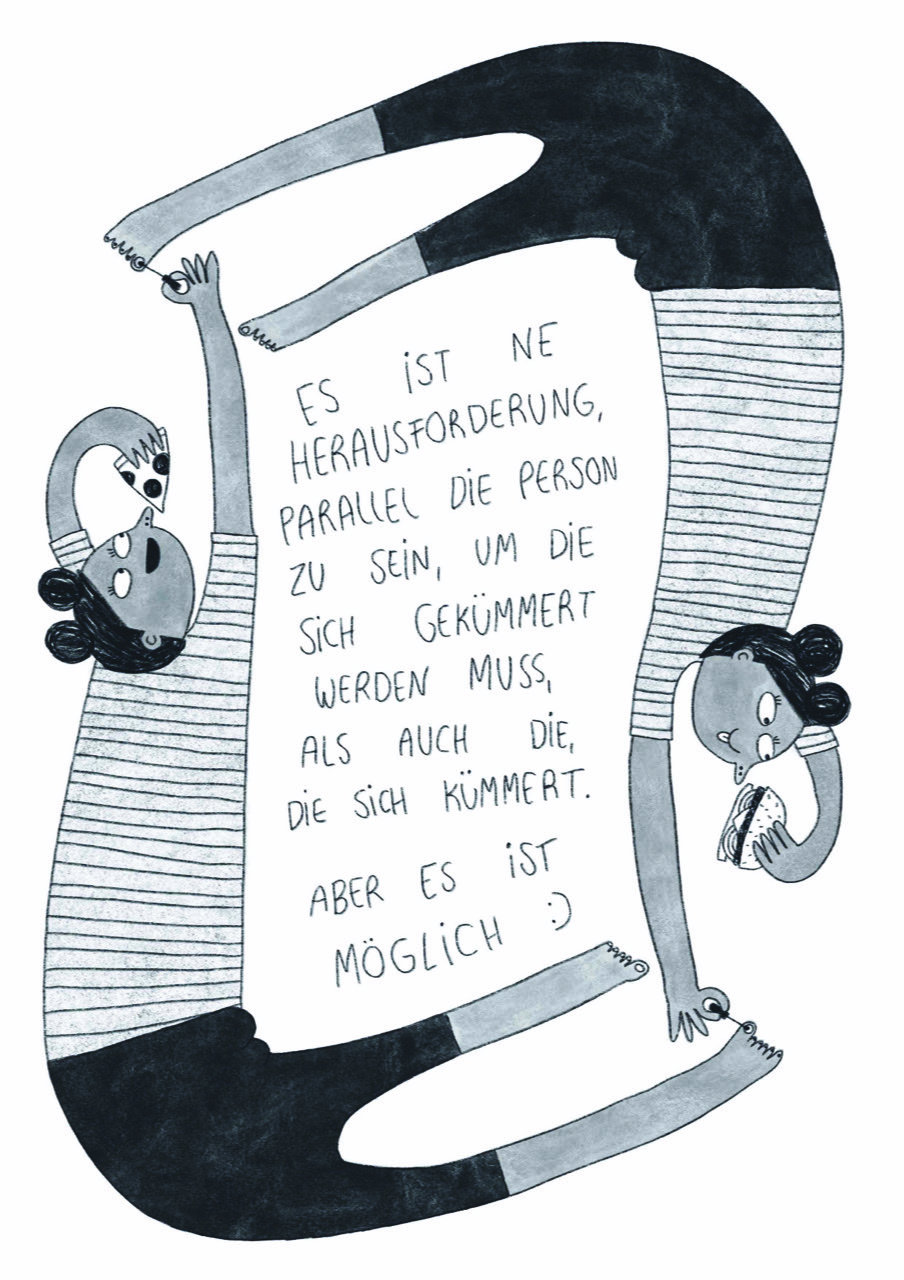 ES iST NE
HERAUSFORDERUNG,
PARALLEL DiE PERSON
ZU SEiN, UM DiE
SiCH GEKÜMMERT
WERDEN MUSS,
ALS AUCH DiE,
DiE SiCH KÜMMERT.
ABER ES iST
MÖGLiCH :)